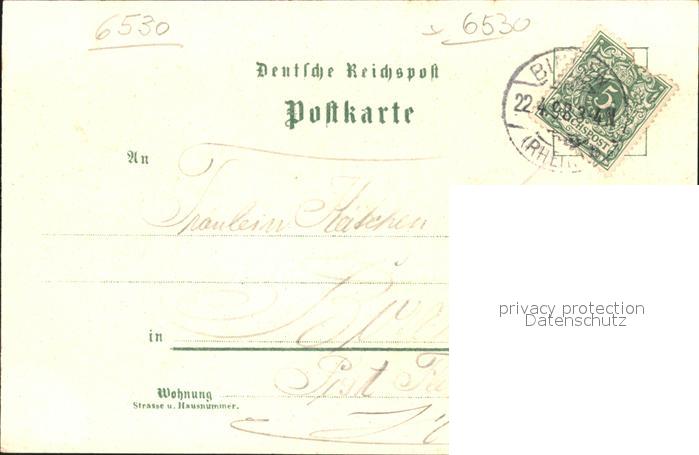 6530
6530
Deutsche Reichspost
Postkarte
BINGEN
22.4.98.3-4N.
(RHEIN)
5
REICHSPOST
An
Fräulein Käthchen
in
Post
Wohnung
Strasse u. Hausnummer.
privacy protection
Datenschutz